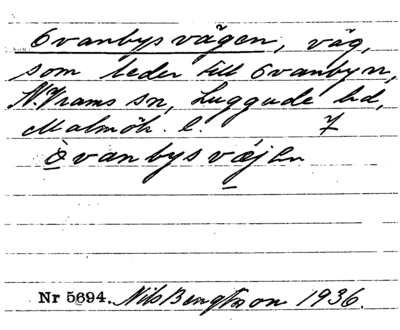 Ovanbysvägen, väg,
som leder till Ovanbyn,
N. Vrams sn, Luggude hd,
Malmöh. l. 7
Ovanbysväjen
Nr 5694. Nils Bengtsson 1936.